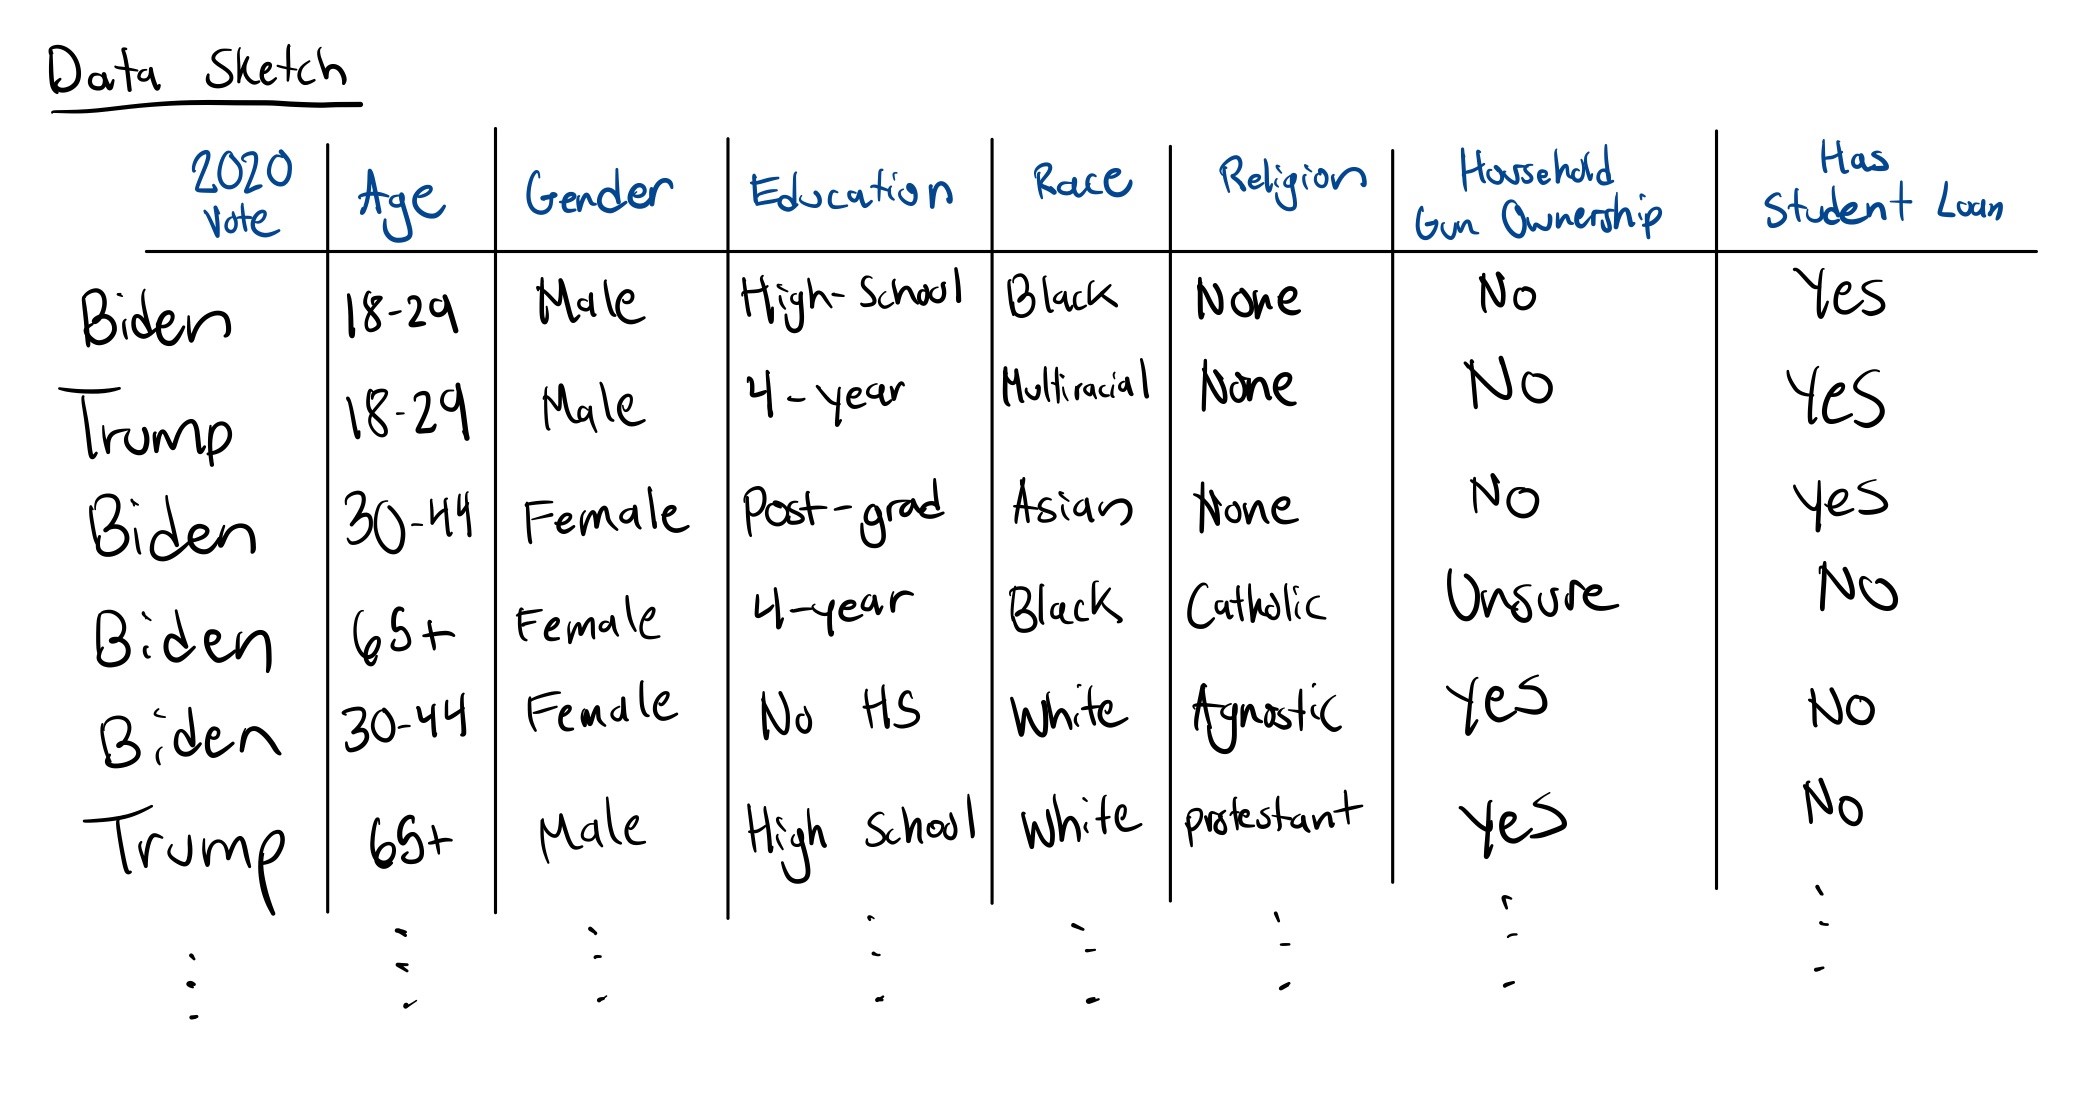 Data Sketch
2020 Vote Age Gender Education Race Religion Household Gun Ownership Has Student Loan
Biden 18-29 Male High-School Black None No Yes
Trump 18-29 Male 4-year Multiracial None No Yes
Biden 30-44 Female Post-grad Asian None No Yes
Biden 65+ Female 4-year Black Catholic Unsure No
Biden 30-44 Female No HS White Agnostic Yes No
Trump 65+ Male High School White protestant Yes No